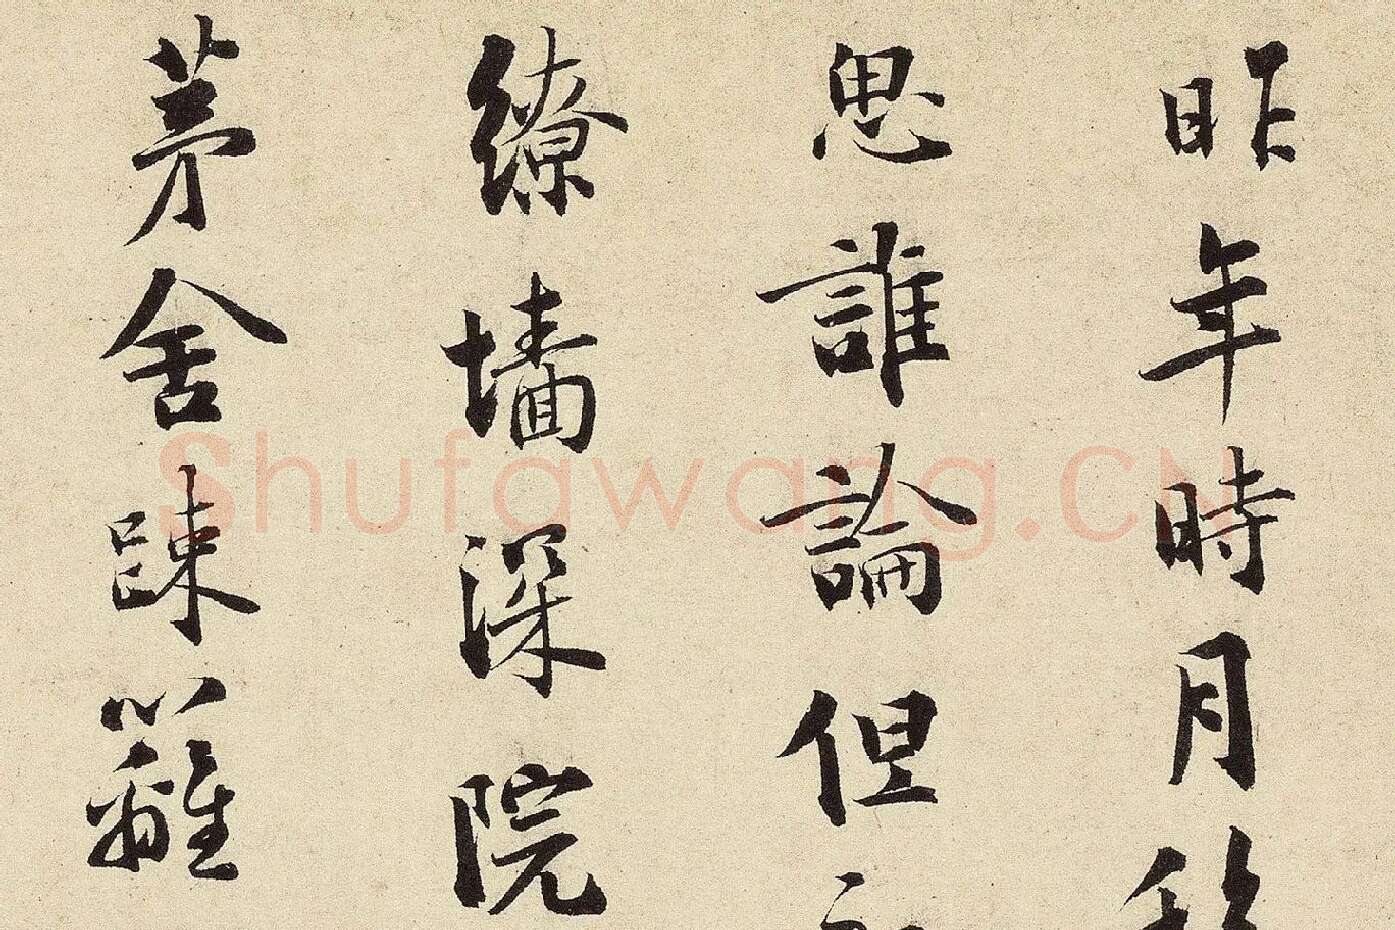 昨年時月
思誰論但
繚墻深院
茅舍踈籬
Shufawang.CN